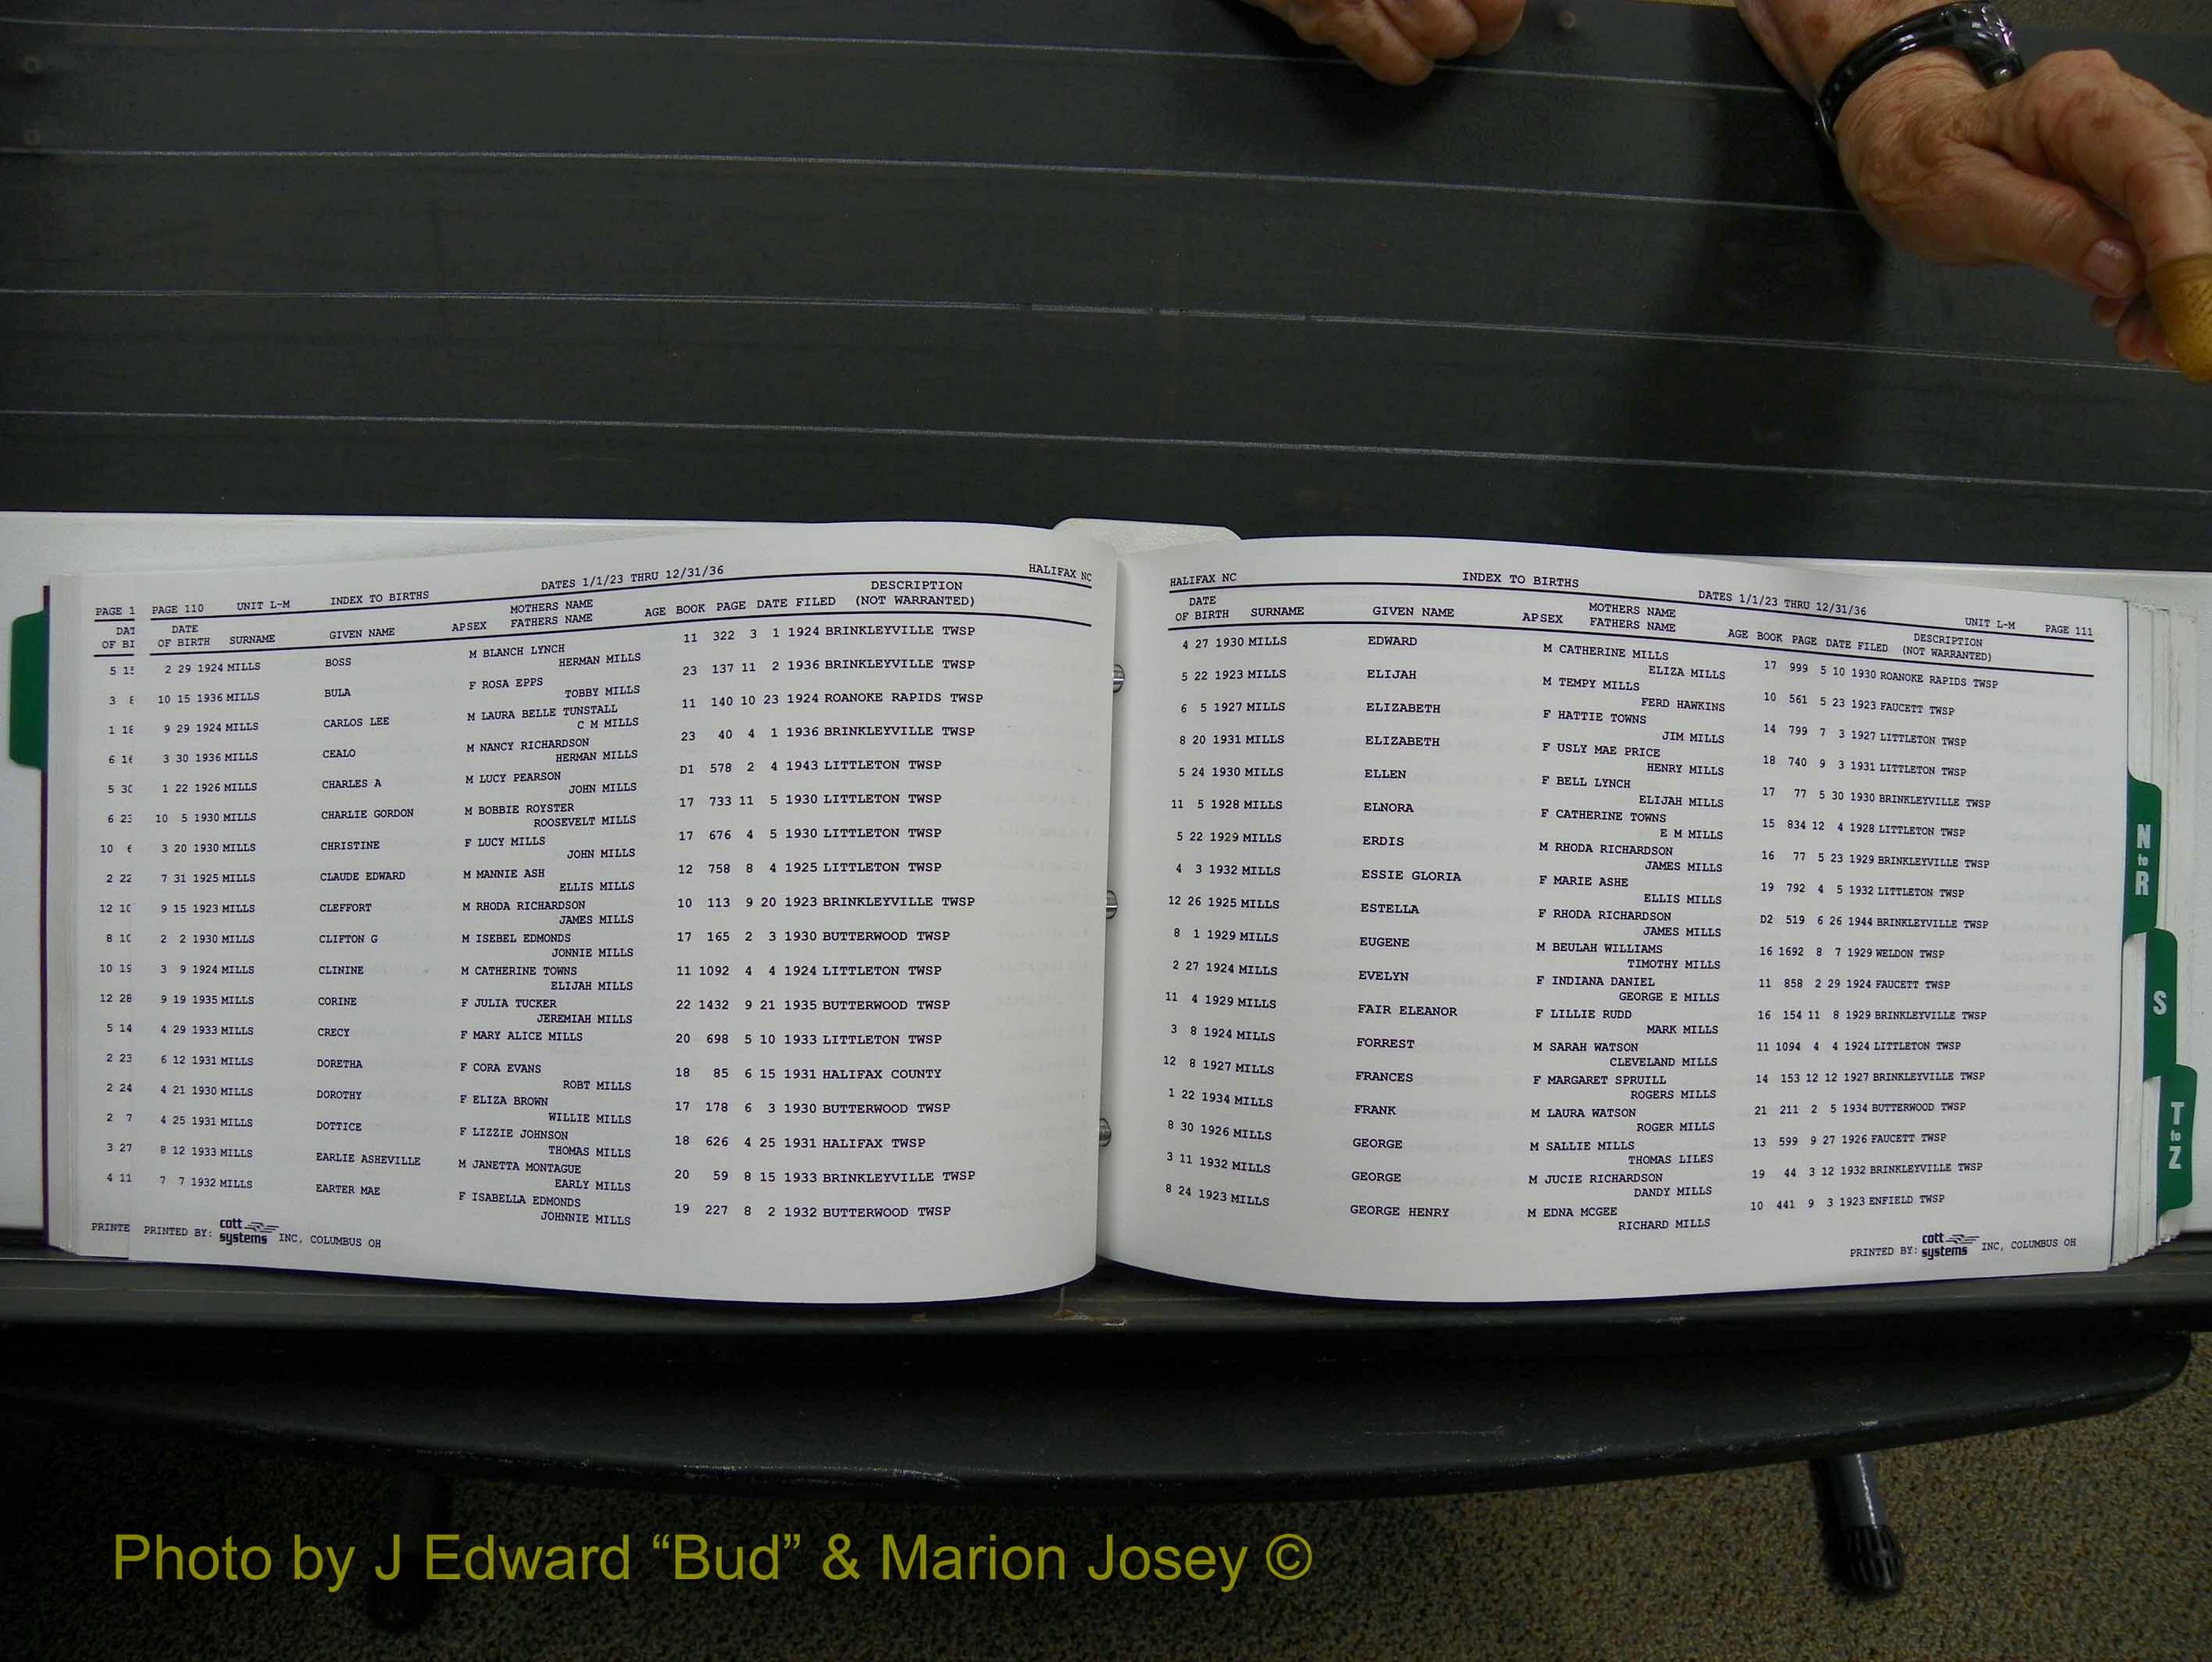 PAGE 1
DAT
OF BI
5 15
3 8
1 18
6 16
5 30
6 23
10 6
2 22
12 10
8 10
10 19
12 28
5 14
2 23
2 24
2 7
3 27
4 11
PRINTE
PAGE 110 UNIT L-M INDEX TO BIRTHS DATES 1/1/23 THRU 12/31/36 HALIFAX NC
DATE MOTHERS NAME DESCRIPTION
OF BIRTH SURNAME GIVEN NAME AP SEX FATHERS NAME AGE BOOK PAGE DATE FILED (NOT WARRANTED)
2 29 1924 MILLS BOSS M BLANCH LYNCH 11 322 3 1 1924 BRINKLEYVILLE TWSP
HERMAN MILLS
10 15 1936 MILLS BULA F ROSA EPPS 23 137 11 2 1936 BRINKLEYVILLE TWSP
TOBBY MILLS
9 29 1924 MILLS CARLOS LEE M LAURA BELLE TUNSTALL 11 140 10 23 1924 ROANOKE RAPIDS TWSP
C M MILLS
3 30 1936 MILLS CEALO M NANCY RICHARDSON 23 40 4 1 1936 BRINKLEYVILLE TWSP
HERMAN MILLS
1 22 1926 MILLS CHARLES A M LUCY PEARSON D1 578 2 4 1943 LITTLETON TWSP
JOHN MILLS
10 5 1930 MILLS CHARLIE GORDON M BOBBIE ROYSTER 17 733 11 5 1930 LITTLETON TWSP
ROOSEVELT MILLS
3 20 1930 MILLS CHRISTINE F LUCY MILLS 17 676 4 5 1930 LITTLETON TWSP
JOHN MILLS
7 31 1925 MILLS CLAUDE EDWARD M MANNIE ASH 12 758 8 4 1925 LITTLETON TWSP
ELLIS MILLS
9 15 1923 MILLS CLEFFORT M RHODA RICHARDSON 10 113 9 20 1923 BRINKLEYVILLE TWSP
JAMES MILLS
2 2 1930 MILLS CLIFTON G M ISEBEL EDMONDS 17 165 2 3 1930 BUTTERWOOD TWSP
JONNIE MILLS
3 9 1924 MILLS CLININE M CATHERINE TOWNS 11 1092 4 4 1924 LITTLETON TWSP
ELIJAH MILLS
9 19 1935 MILLS CORINE F JULIA TUCKER 22 1432 9 21 1935 BUTTERWOOD TWSP
JEREMIAH MILLS
4 29 1933 MILLS CRECY F MARY ALICE MILLS 20 698 5 10 1933 LITTLETON TWSP
6 12 1931 MILLS DORETHA F CORA EVANS 18 85 6 15 1931 HALIFAX COUNTY
ROBT MILLS
4 21 1930 MILLS DOROTHY F ELIZA BROWN 17 178 6 3 1930 BUTTERWOOD TWSP
WILLIE MILLS
4 25 1931 MILLS DOTTICE F LIZZIE JOHNSON 18 626 4 25 1931 HALIFAX TWSP
THOMAS MILLS
8 12 1933 MILLS EARLIE ASHEVILLE M JANETTA MONTAGUE 20 59 8 15 1933 BRINKLEYVILLE TWSP
EARLY MILLS
7 7 1932 MILLS EARTER MAE F ISABELLA EDMONDS 19 227 8 2 1932 BUTTERWOOD TWSP
JOHNNIE MILLS
PRINTED BY: cott systems INC, COLUMBUS OH
HALIFAX NC INDEX TO BIRTHS DATES 1/1/23 THRU 12/31/36 UNIT L-M PAGE 111
DATE MOTHERS NAME DESCRIPTION
OF BIRTH SURNAME GIVEN NAME AP SEX FATHERS NAME AGE BOOK PAGE DATE FILED (NOT WARRANTED)
4 27 1930 MILLS EDWARD M CATHERINE MILLS 17 999 5 10 1930 ROANOKE RAPIDS TWSP
ELIZA MILLS
5 22 1923 MILLS ELIJAH M TEMPY MILLS 10 561 5 23 1923 FAUCETT TWSP
FERD HAWKINS
6 5 1927 MILLS ELIZABETH F HATTIE TOWNS 14 799 7 3 1927 LITTLETON TWSP
JIM MILLS
8 20 1931 MILLS ELIZABETH F USLY MAE PRICE 18 740 9 3 1931 LITTLETON TWSP
HENRY MILLS
5 24 1930 MILLS ELLEN F BELL LYNCH 17 77 5 30 1930 BRINKLEYVILLE TWSP
ELIJAH MILLS
11 5 1928 MILLS ELNORA F CATHERINE TOWNS 15 834 12 4 1928 LITTLETON TWSP
E M MILLS
5 22 1929 MILLS ERDIS M RHODA RICHARDSON 16 77 5 23 1929 BRINKLEYVILLE TWSP
JAMES MILLS
4 3 1932 MILLS ESSIE GLORIA F MARIE ASHE 19 792 4 5 1932 LITTLETON TWSP
ELLIS MILLS
12 26 1925 MILLS ESTELLA F RHODA RICHARDSON D2 519 6 26 1944 BRINKLEYVILLE TWSP
JAMES MILLS
8 1 1929 MILLS EUGENE M BEULAH WILLIAMS 16 1692 8 7 1929 WELDON TWSP
TIMOTHY MILLS
2 27 1924 MILLS EVELYN F INDIANA DANIEL 11 858 2 29 1924 FAUCETT TWSP
GEORGE E MILLS
11 4 1929 MILLS FAIR ELEANOR F LILLIE RUDD 16 154 11 8 1929 BRINKLEYVILLE TWSP
MARK MILLS
3 8 1924 MILLS FORREST M SARAH WATSON 11 1094 4 4 1924 LITTLETON TWSP
CLEVELAND MILLS
12 8 1927 MILLS FRANCES F MARGARET SPRUILL 14 153 12 12 1927 BRINKLEYVILLE TWSP
ROGERS MILLS
1 22 1934 MILLS FRANK M LAURA WATSON 21 211 2 5 1934 BUTTERWOOD TWSP
ROGER MILLS
8 30 1926 MILLS GEORGE M SALLIE MILLS 13 599 9 27 1926 FAUCETT TWSP
THOMAS LILES
3 11 1932 MILLS GEORGE M JUCIE RICHARDSON 19 44 3 12 1932 BRINKLEYVILLE TWSP
DANDY MILLS
8 24 1923 MILLS GEORGE HENRY M EDNA MCGEE 10 441 9 3 1923 ENFIELD TWSP
RICHARD MILLS
PRINTED BY: cott systems INC, COLUMBUS OH
N to R
S
T to Z
Photo by J Edward “Bud” & Marion Josey ©